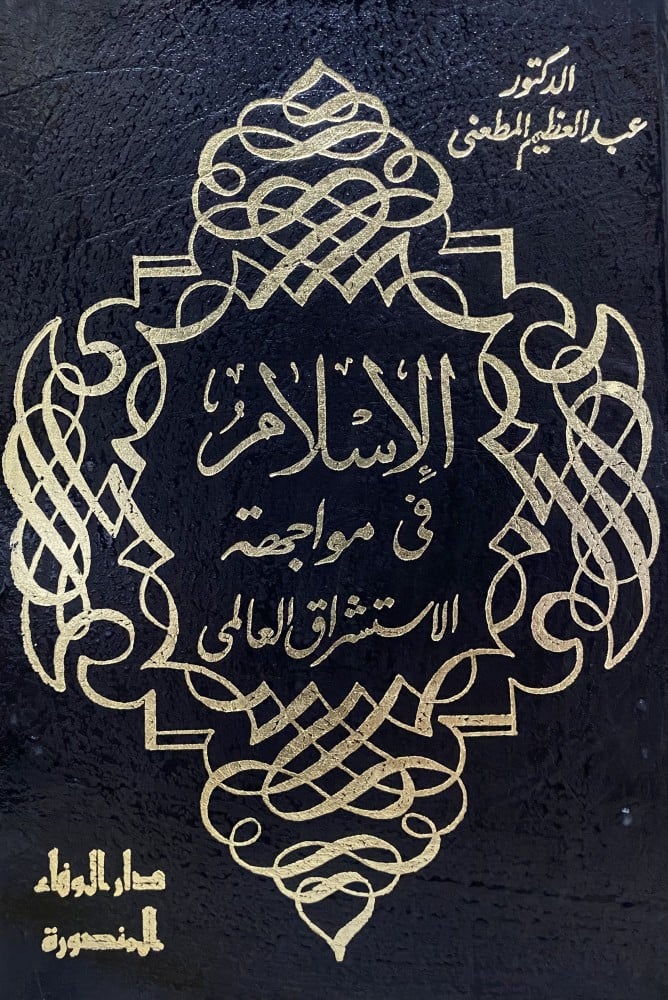 الدكتور
عبد العظيم المطعنى
الإسلامُ
فى مواجهة
الاستشراق العالمى
دار الوفاء
المنصورة